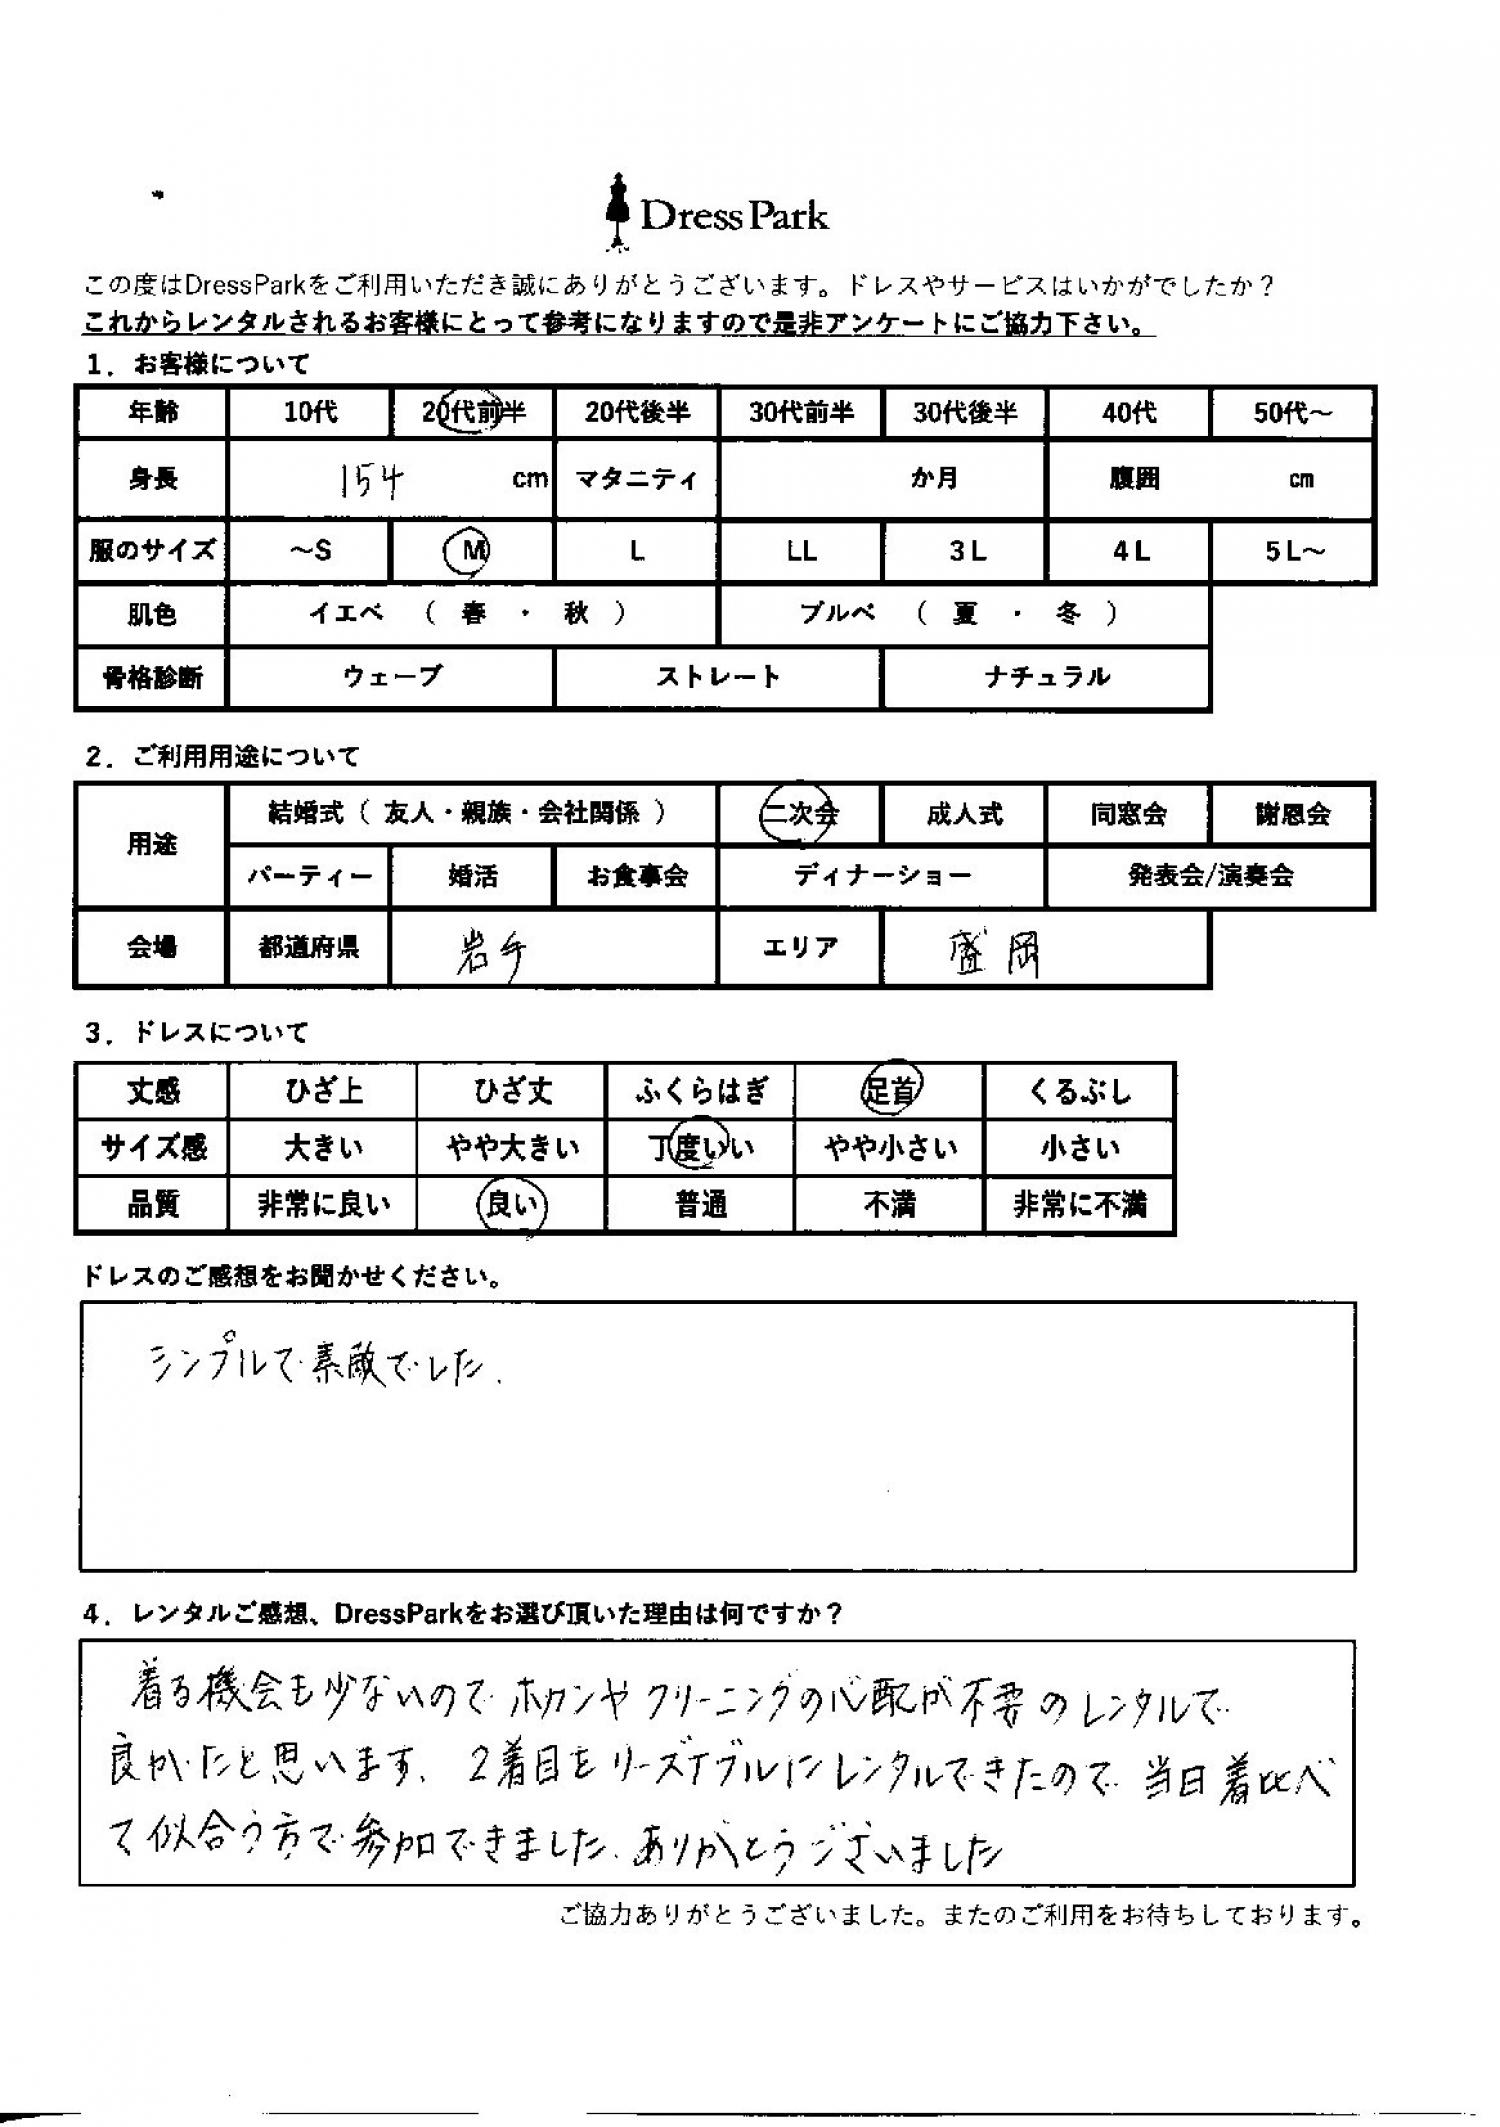 Dress Park
この度はDressParkをご利用いただき誠にありがとうございます。ドレスやサービスはいかがでしたか？
これからレンタルされるお客様にとって参考になりますので是非アンケートにご協力下さい。
1．お客様について
年齢 10代 20代前半 20代後半 30代前半 30代後半 40代 50代～
身長 154 cm マタニティ か月 腹囲 cm
服のサイズ ～S M L LL 3L 4L 5L～
肌色 イエベ （ 春 ・ 秋 ） ブルベ （ 夏 ・ 冬 ）
骨格診断 ウェーブ ストレート ナチュラル
2．ご利用用途について
用途 結婚式（ 友人・親族・会社関係 ） 二次会 成人式 同窓会 謝恩会
パーティー 婚活 お食事会 ディナーショー 発表会/演奏会
会場 都道府県 岩手 エリア 盛岡
3．ドレスについて
丈感 ひざ上 ひざ丈 ふくらはぎ 足首 くるぶし
サイズ感 大きい やや大きい 丁度いい やや小さい 小さい
品質 非常に良い 良い 普通 不満 非常に不満
ドレスのご感想をお聞かせください。
シンプルで素敵でした．
4．レンタルご感想、DressParkをお選び頂いた理由は何ですか？
着る機会も少ないのでホカンやクリーニングの心配が不要のレンタルで
良かったと思います．2着目をリーズナブルにレンタルできたので当日着比べ
て似合う方で参加できました．ありがとうございました
ご協力ありがとうございました。またのご利用をお待ちしております。